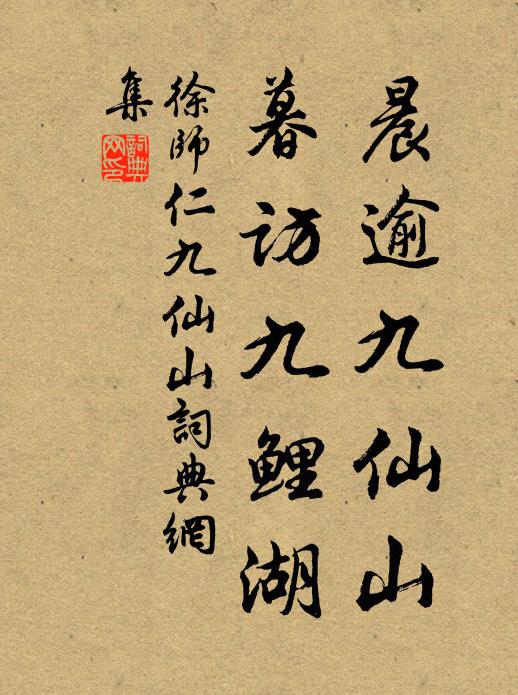 晨逾九仙山
暮访九鲤湖
徐師仁九仙山詞典網
集
詞典网印